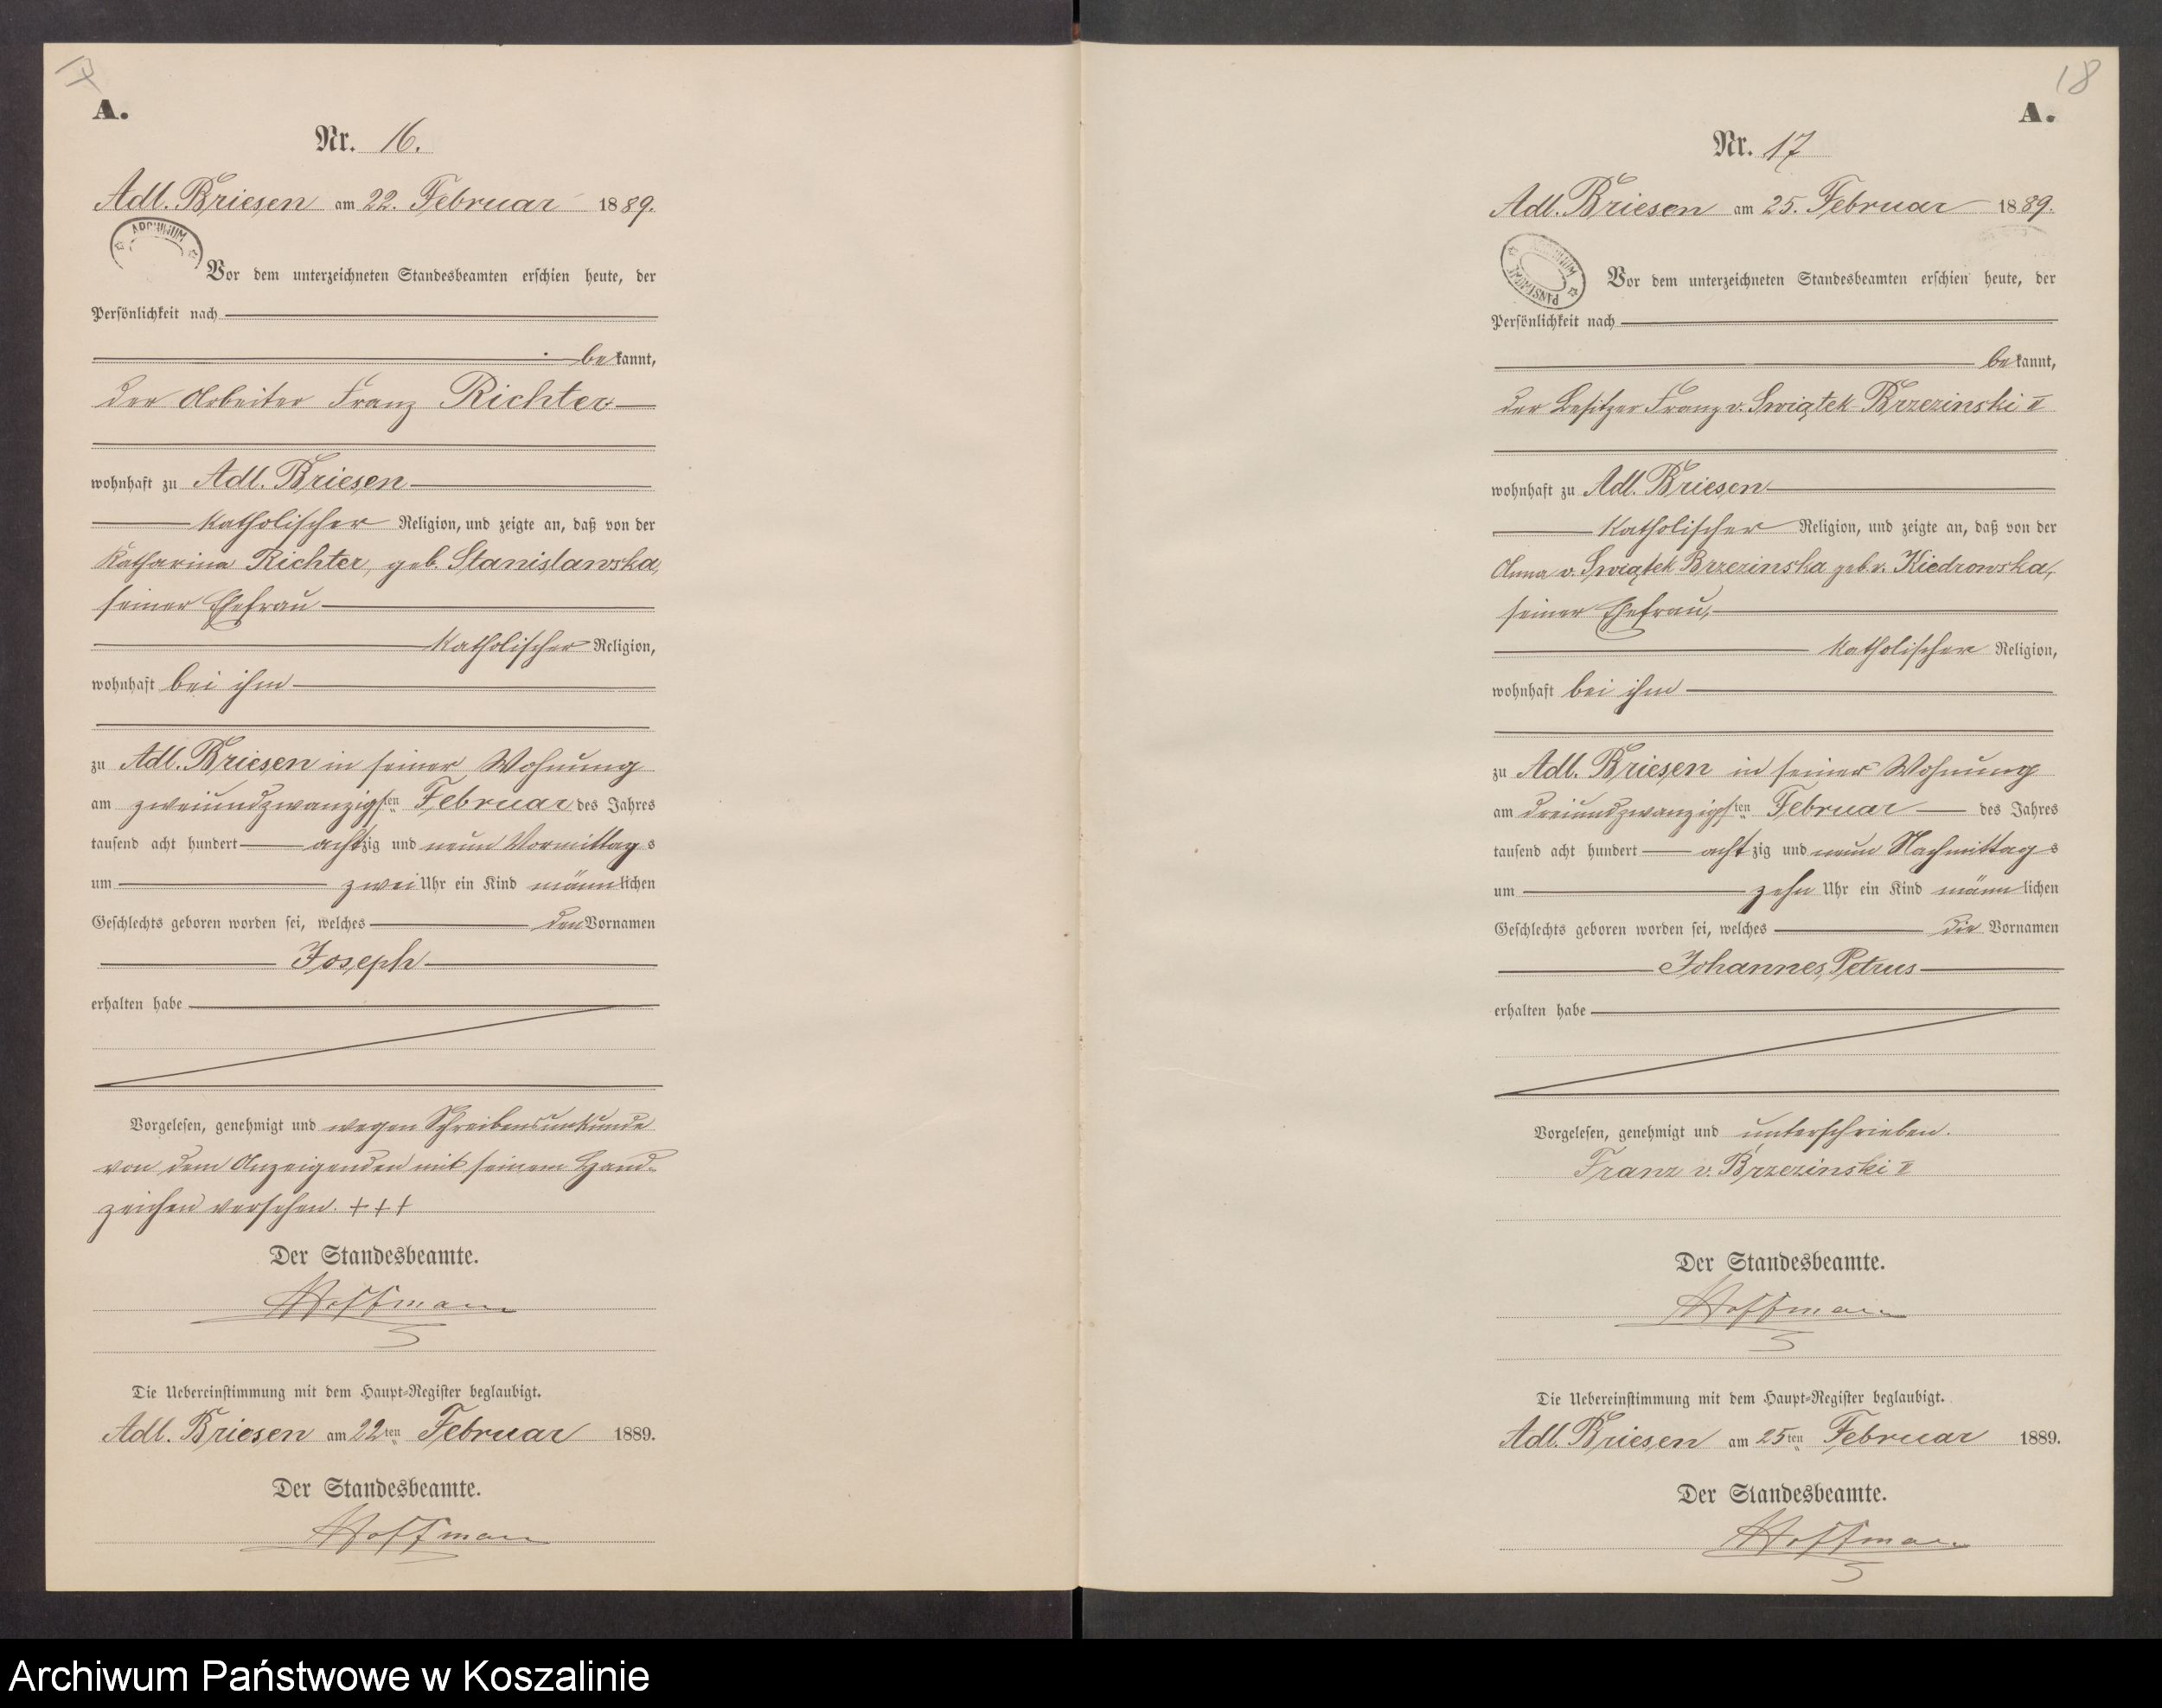 A.
Nr. 16.
Adl. Briesen am 22. Februar 1889.
ARCHIWUM
Vor dem unterzeichneten Standesbeamten erschien heute, der
Persönlichkeit nach
bekannt,
der Arbeiter Franz Richter
wohnhaft zu Adl. Briesen
katholischer Religion, und zeigte an, daß von der
Katharina Richter, geb. Stanislawska,
seiner Ehefrau
katholischer Religion,
wohnhaft bei ihm
zu Adl. Briesen in seiner Wohnung
am zweiundzwanzigsten Februar des Jahres
tausend acht hundert achtzig und neun Vormittags
um zwei Uhr ein Kind männlichen
Geschlechts geboren worden sei, welches den Vornamen
Joseph
erhalten habe
Vorgelesen, genehmigt und wegen Schreibensunkunde
von dem Anzeigenden mit seinem Hand-
zeichen versehen. +++
Der Standesbeamte.
Hoffmann
Die Uebereinstimmung mit dem Haupt-Register beglaubigt.
Adl. Briesen am 22ten Februar 1889.
Der Standesbeamte.
Hoffmann
18
A.
Nr. 17
Adl. Briesen am 25. Februar 1889.
ARCHIWUM PAŃSTWOWE
Vor dem unterzeichneten Standesbeamten erschien heute, der
Persönlichkeit nach
bekannt,
der Besitzer Franz v. Swiątek Brzezinski II
wohnhaft zu Adl. Briesen
katholischer Religion, und zeigte an, daß von der
Anna v. Swiątek Brzezinska geb. v. Kiedrowska,
seiner Ehefrau,
katholischer Religion,
wohnhaft bei ihm
zu Adl. Briesen in seiner Wohnung
am dreiundzwanzigsten Februar des Jahres
tausend acht hundert achtzig und neun Nachmittags
um zehn Uhr ein Kind männlichen
Geschlechts geboren worden sei, welches die Vornamen
Johannes Petrus
erhalten habe
Vorgelesen, genehmigt und unterschrieben.
Franz v. Brzezinski II
Der Standesbeamte.
Hoffmann
Die Uebereinstimmung mit dem Haupt-Register beglaubigt.
Adl. Briesen am 25ten Februar 1889.
Der Standesbeamte.
Hoffmann
Archiwum Państwowe w Koszalinie